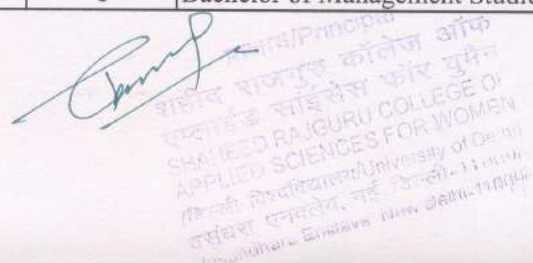 Bachelor of Management Studie
Principal
शहीद राजगुरु कॉलेज ऑफ
एप्लाईड साइंसेस फॉर वुमेन
SHAHEED RAJGURU COLLEGE OF
APPLIED SCIENCES FOR WOMEN
(दिल्ली विश्वविद्यालय/University of Delhi)
वसुंधरा एनक्लेव, नई दिल्ली-
Enclave New Delhi-